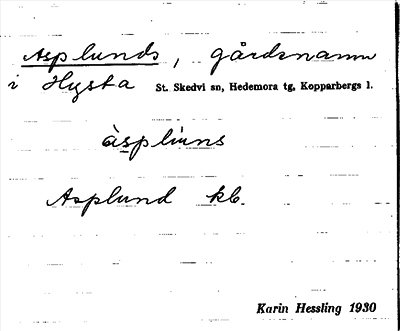 Asplunds, gårdsnamn
i Hysta St. Skedvi sn, Hedemora tg, Kopparbergs l.
àspluns
Asplund kb.
Karin Hessling 1930